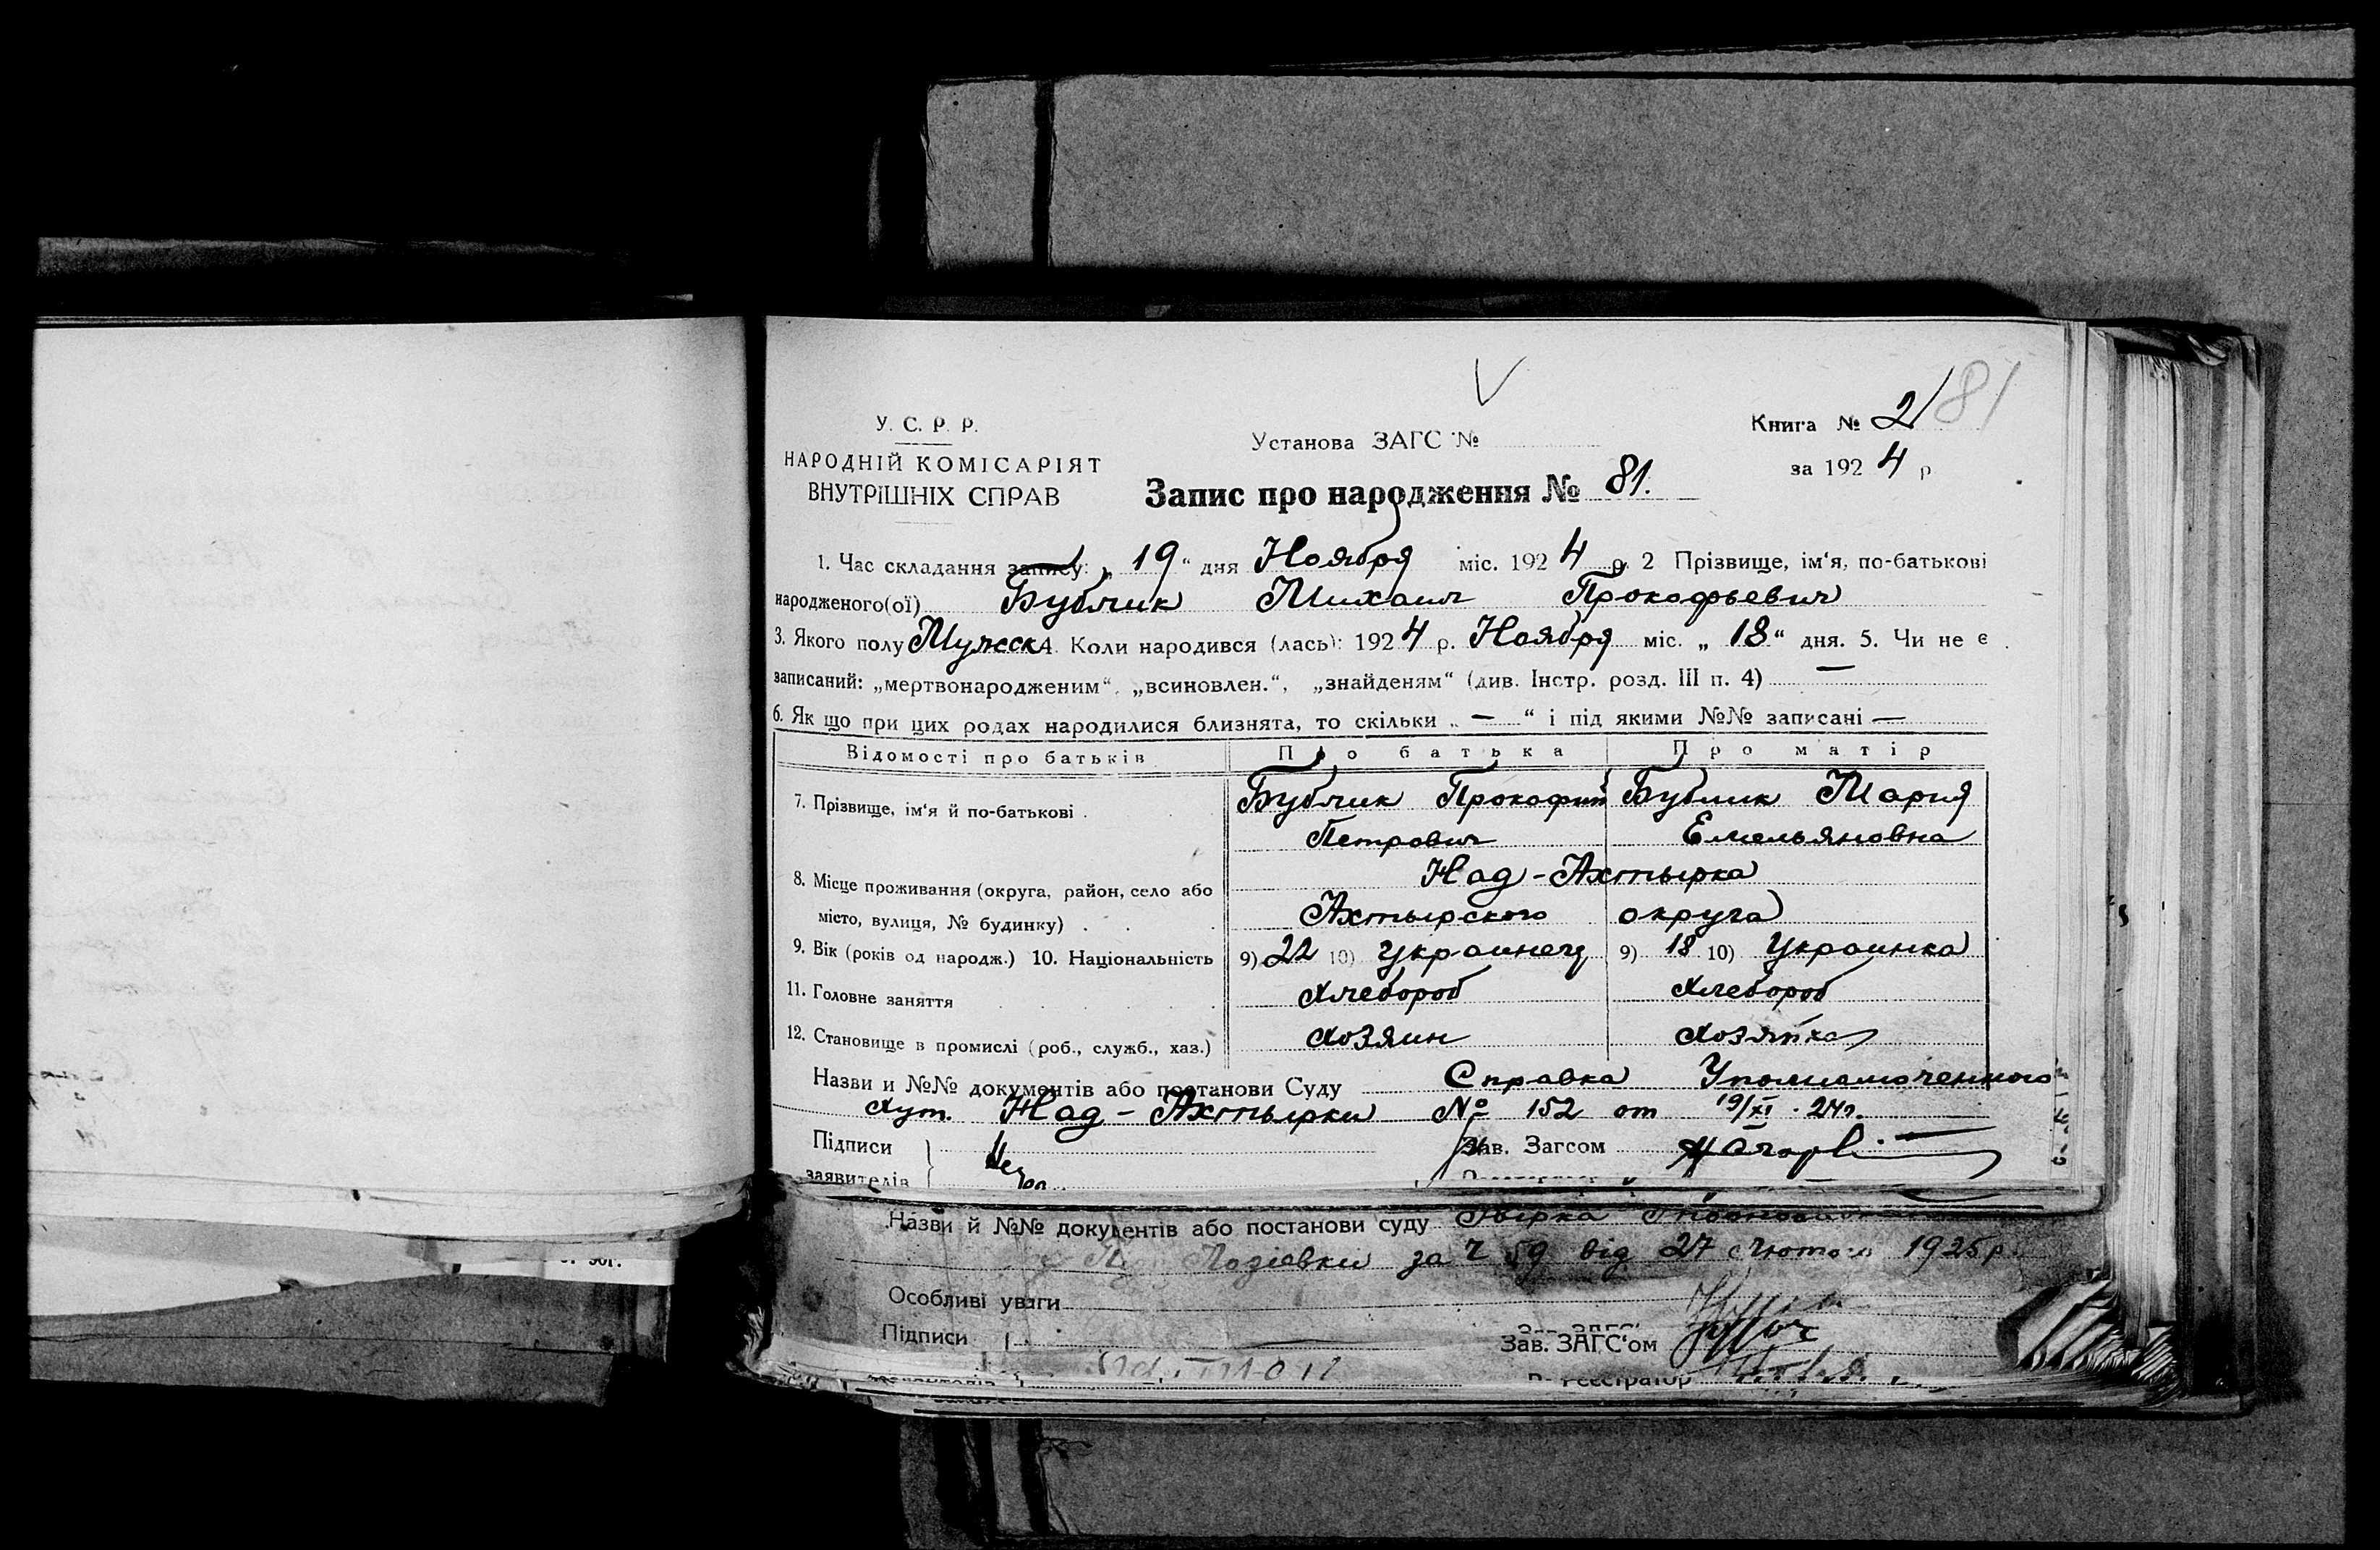 81
У. С. Р. Р.
НАРОДНІЙ КОМІСАРІЯТ
ВНУТРІШНІХ СПРАВ
Установа ЗАГС №
Книга № 2
за 1924 р
Запис про народження № 81.
1. Час складання запису: „ 19 “ дня Ноября міс. 1924 р. 2 Прізвище, ім‘я, по-батькові
народженого(ої) Бублик Михаил Прокофьевич
3. Якого полу Мужск 4. Коли народився (лась): 1924 р. Ноября міс. „ 18 “ дня. 5. Чи не є
записаний: „мертвонародженим“, „всиновлен.“, „знайденям“ (див. Інстр. розд. III п. 4) —
6. Як що при цих родах народилися близнята, то скільки „ — “ і під якими №№ записані —
Відомості про батьків Про батька Про матір
7. Прізвище, ім‘я й по-батькові . Бублик Прокофий Бублик Мария
Петрович Емельяновна
8. Місце проживання (округа, район, село або Над-Ахтырка
місто, вулиця, № будинку) . Ахтырского округа
9. Вік (років од народж.) 10. Національність 9) 22 10) Украинец 9) 18 10) Украинка
11. Головне заняття Хлебороб Хлебороб
12. Становище в промислі (роб., служб., хаз.) Хозяин Хозяйка
Назви и №№ документів або постанови Суду Справка Уполномоченного
Хут. Над-Ахтырки № 152 от 19/XI . 24г.
Підписи Зав. Загсом
заявителів
Назви й №№ документів або постанови суду
Лозівки за Ч 59 від 27 Лютого 1925 р.
Особливі уваги
Підписи Зав. ЗАГС‘ом
Реєстратор